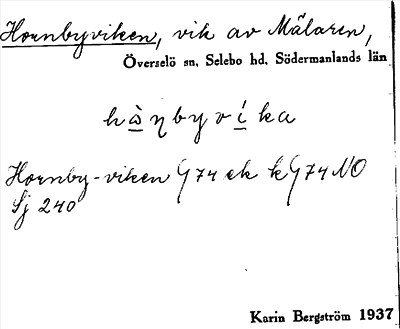 Hornbyviken, vik av Mälaren,
Överselö sn, Selebo hd, Södermanlands län
hὰŋbyvi̍ka
Hornby-viken G 74 ek k G 74 NO
Sj 240
Karin Bergström 1937